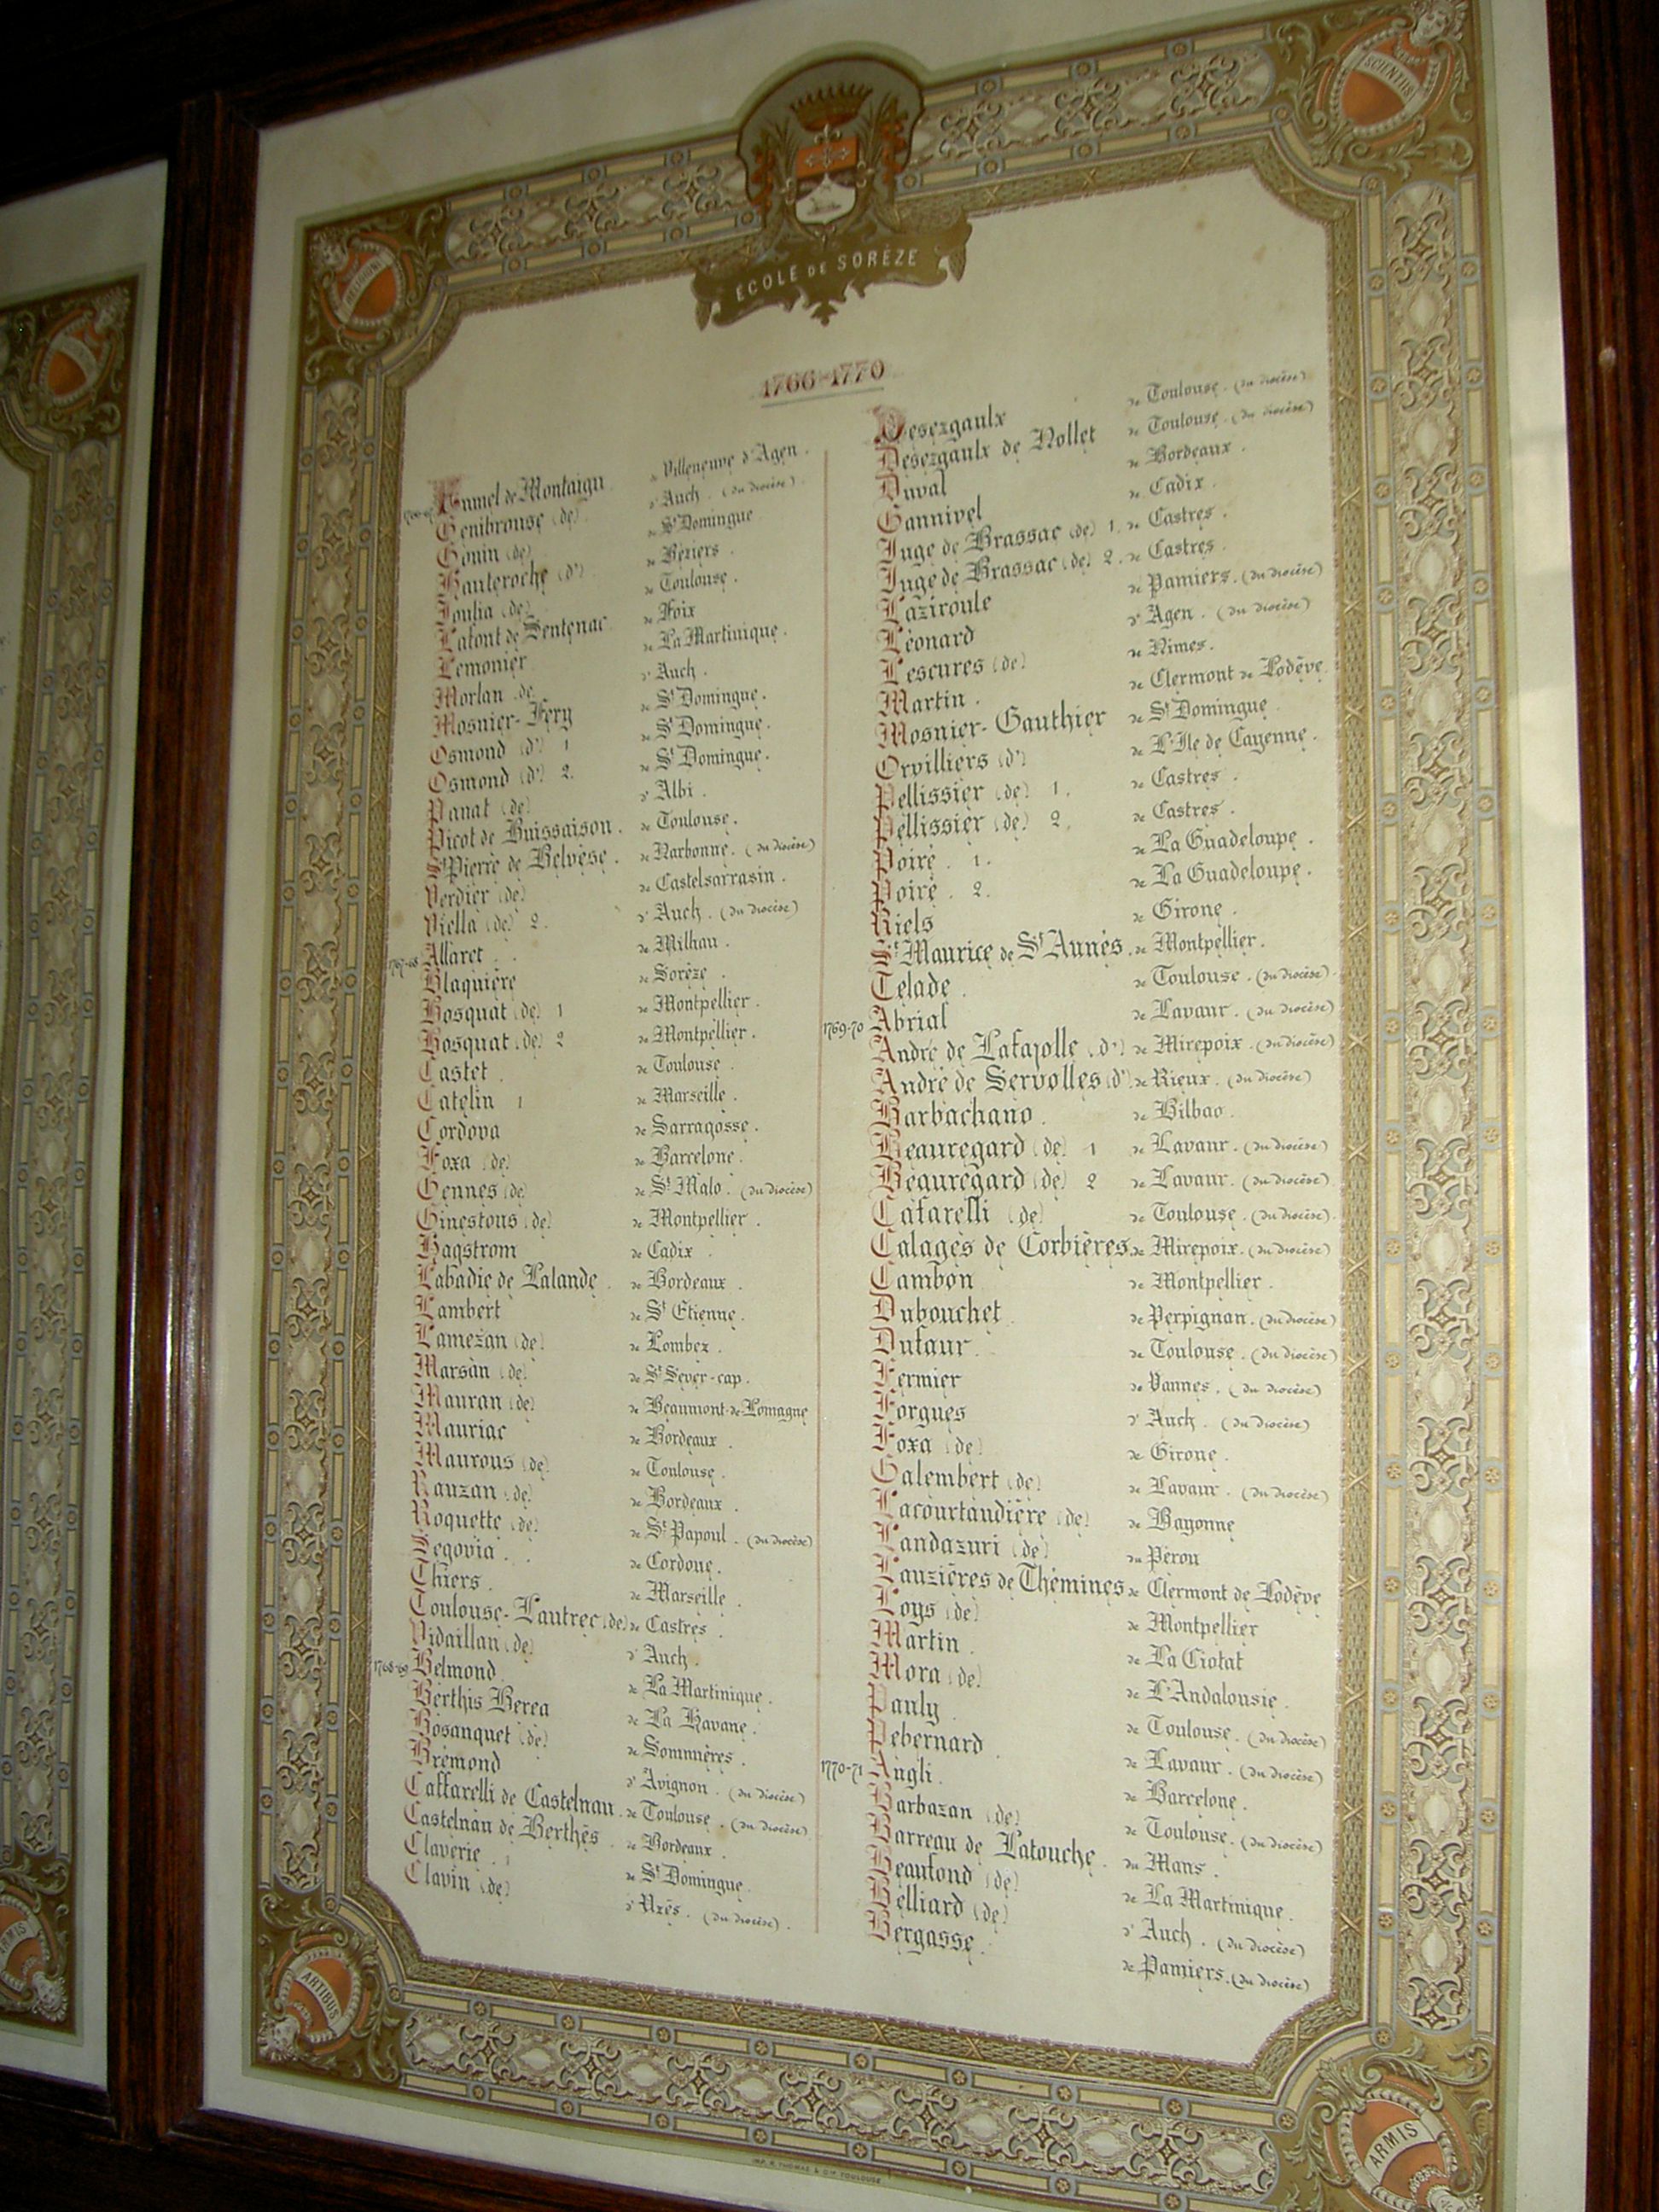 RELIGIONI
SCIENTIIS
ÉCOLE DE SORÈZE
1766-1770
de Montaigu de Villeneuve d'Agen.
Genibrouse (de) d'Auch. (du diocèse)
Gonin (de) de St Domingue
Hauteroche (d') de Béziers.
Joulia (de) de Toulouse.
Lafont de Sentenac de Foix
Lemonier de La Martinique.
Morlan de d'Auch.
Mosnier-Fery de St Domingue.
Osmond (d') 1 de St Domingue.
Osmond (d') 2. de St Domingue.
Panat (de) d'Albi.
Picot de Buissaison. de Toulouse.
St Pierre de Belvèse. de Narbonne. (du diocèse)
Verdier (de) de Castelsarrasin.
Viella (de) 2. d'Auch. (du diocèse)
1767-68 Allaret. de Milhau.
Blaquière de Sorèze.
Bosquat (de) 1 de Montpellier.
Bosquat (de) 2 de Montpellier.
Castet. de Toulouse.
Catelin 1 de Marseille.
Cordova de Sarragosse.
Foxa (de) de Barcelone.
Gennes (de) de St Malo. (du diocèse)
Ginestous (de) de Montpellier.
Hagstrom de Cadix.
Labadie de Lalande. de Bordeaux.
Lambert de St Etienne.
Lamezan (de) de Lombez.
Marsan (de) de St Sever-cap.
Mauran (de) de Beaumont-de-Lomagne
Mauriac de Bordeaux.
Maurous (de) de Toulouse.
Rauzan (de) de Bordeaux.
Roquette (de) de St Papoul. (du diocèse)
Segovia. de Cordoue.
Thiers. de Marseille.
Toulouse-Lautrec (de) de Castres.
Vidaillan (de) d'Auch.
1768-69 Belmond de La Martinique.
Berthis Berea de La Havane.
Bosanquet (de) de Sommières.
Brémond d'Avignon. (du diocèse)
Caffarelli de Castelnau. de Toulouse. (du diocèse)
Castelnau de Berthès. de Bordeaux.
Claverie. 1 de St Domingue.
Clavin (de) d'Uzès. (du diocèse).
Desezgaulx de Toulouse. (du diocèse)
Desezgaulx de Nollet de Toulouse. (du diocèse)
Duval de Bordeaux.
Gannivel de Cadix.
Juge de Brassac (de) 1. de Castres.
Juge de Brassac (de) 2. de Castres.
Laziroule de Pamiers. (du diocèse)
Léonard d'Agen. (du diocèse)
Lescures (de) de Nimes.
Martin. de Clermont de Lodève
Mosnier-Gauthier de St Domingue
Orvilliers (d') de L'Ile de Cayenne.
Pellissier (de) 1. de Castres.
Pellissier (de) 2. de Castres.
Poiré. 1. de La Guadeloupe.
Poiré. 2. de La Guadeloupe.
Riels de Girone.
St Maurice de St Aunès. de Montpellier.
Telade. de Toulouse. (du diocèse)
1769-70 Abrial de Lavaur. (du diocèse)
André de Lafajolle (d') de Mirepoix. (du diocèse)
André de Servolles (d') de Rieux. (du diocèse)
Barbachano. de Bilbao.
Beauregard (de) 1 de Lavaur. (du diocèse)
Beauregard (de) 2 de Lavaur. (du diocèse)
Cafarelli (de) de Toulouse. (du diocèse).
Calagès de Corbières. de Mirepoix. (du diocèse)
Cambon de Montpellier.
Dubouchet de Perpignan. (du diocèse)
Dufaur. de Toulouse. (du diocèse)
Fermier de Vannes. (du diocèse)
Forgues d'Auch. (du diocèse)
Foxa (de) de Girone.
Galembert (de) de Lavaur. (du diocèse)
Lacourtaudière (de) de Bayonne
Landazuri (de) du Pérou
Lauzières de Thémines de Clermont de Lodève
Loys (de) de Montpellier
Martin. de La Ciotat
Mora (de) de L'Andalousie.
Pauly. de Toulouse. (du diocèse)
Pebernard. de Lavaur. (du diocèse)
1770-71 Angli. de Barcelone.
Barbazan (de) de Toulouse. (du diocèse)
Barreau de Latouche. du Mans.
Beaufond (de) de La Martinique.
Belliard (de) d'Auch. (du diocèse)
Bergasse. de Pamiers. (du diocèse)
ARTIBUS
ARMIS